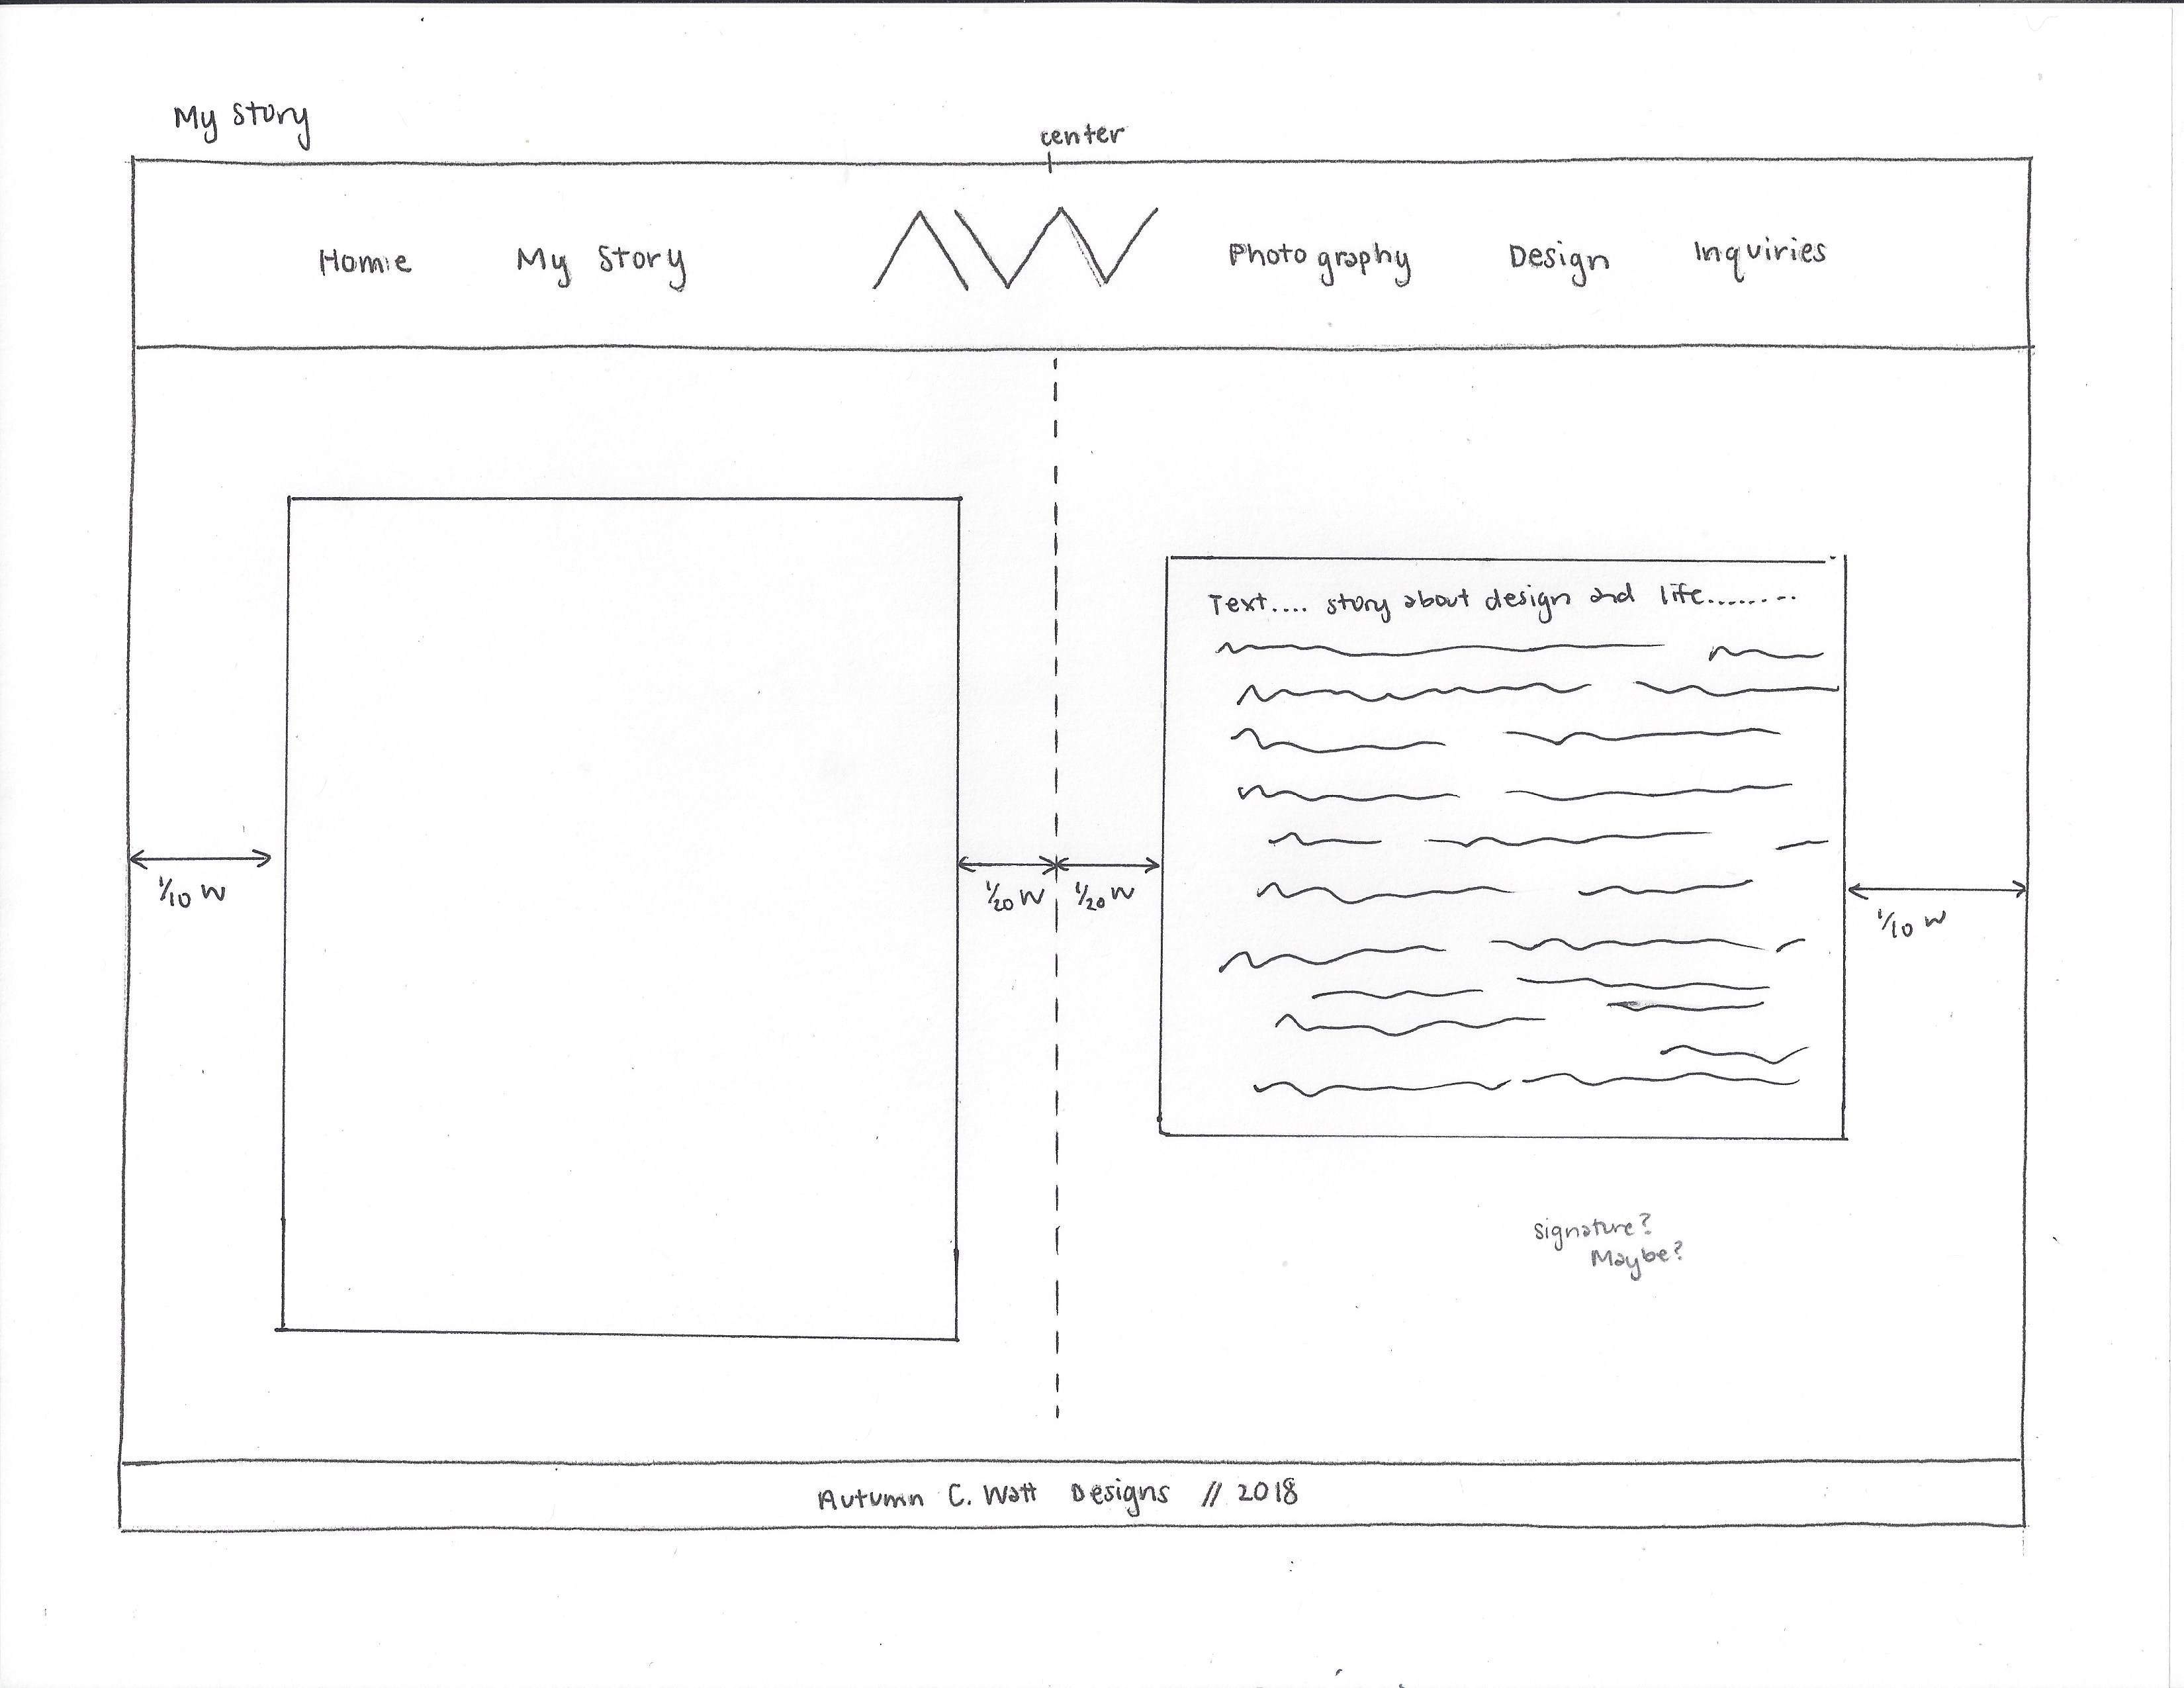 My Story
center
Home My Story AW Photography Design Inquiries
Text.... story about design and life........
1/10 W
1/20 W 1/20 W
1/10 W
signature?
Maybe?
Autumn C. Watt Designs // 2018